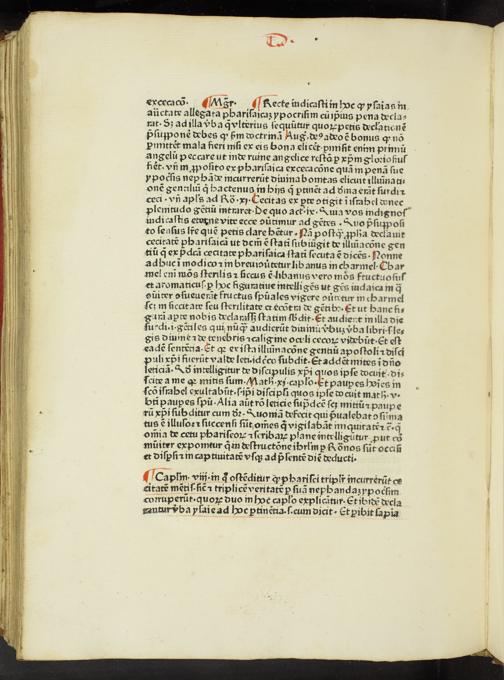 excecacō. Mgr̄. Recte iudicasti in hoc qꝫ ysaias in
aūctate allegata pharisaicaꝫ ypocrisim cū ipius pena decla
rat. Sꝫ ad illa v̄ba q̄ vlterius sequūtur quoꝝ petis declationē
p̄supponē debes qꝫ fm doctrinā Aug. de⁹ adeo ē bonus qꝫ nō
ꝑmitteret mala fieri nisi ex eis bona elicēt. ꝑmisit enim primū
angelū peccare ut inde ruine angelice restō ꝑ xp̄m gloriosius
fiēt. vn̄ in ꝓposito ex pharisaica excecacōne quā in penā sue
ypocrisis nephāde incurrerūt diuina bonitas elicuit illūinati
onē gentiliū qꝫ hactenus in hijs q̄ ꝑtinēt ad diuīa erāt surdi ⁊
ceci. vn̄ apl's ad Ro. xi. Cecitas ex ꝑte ↄtigit ī israhel donec
plenitudo gētiū intraret. De quo act. ix. Quia vos indignos
iudicastis etēne vite ecce ↄūtimur ad gētes. Quo p̄supposi
to sensus lr̄e quē petis clare hētur. Nā postqꝫ ꝓph̄a declauit
cecitatē pharisaicā ut dcm̄ ē stati subiūgit de illūīacōne gen
tiū q̄ ex p̄dca cecitate pharisaica stati secuta ē dicēs. Nonne
adhuc ī modico ⁊ in breui ↄūtetur libanus in charmel. Char
mel eni mōs sterilis ⁊ siccus ē libanus vero mōs fructuosus
et aromaticus. ꝑ hoc figuratiue intelligēs ut gēs iudaica in q̄
ↄūiter ↄsueuerāt fructus sp̄uales vigere ↄūtetur in charmel
scꝫ in siccitate seu sterilitate et ecōtra de gētibꝫ. Et ut hanc fi
gurā apte nobis declarass̄ statim sb̄dit. Et audient in illa die
surdi .i. gētiles qui nūqꝫ audierūt diuinū v̄bū v̄ba libri .s. le
gis diuine ⁊ de tenebris ⁊ caligine ocl'i cecoꝝ videbūt. Et est
eadē sentētia. Et qꝫ ex ista illūīacōne gentiū apostoli ⁊ disci
puli xp̄i fuerūt valde leti. ideo subdit. Et addēt mites ī dn̄o
leticiā. Qd̄ intelligitur de discipulis xp̄i quos ipse docuit. di
scite a me qꝫ mitis sum. Math. xi. caplo. Et paupes hoīes in
scō israhel exultabūt. sīpi discipli quos ipse docuit math. v.
bt̄i paupes spū. Alia aūt rō leticie sup̄dc̄e scꝫ mitiū ⁊ paupe
rū xp̄i subditur cum dr̄. Quoniā defecit qui p̄ualebat ↄsuma
tus ē illusor ⁊ succensi sūt omēs q̄ vigilabāt inꝉ iniquitatē ⁊ē. q̄
oīa de cetu phariseoꝝ ⁊ scribaꝝ plane intelligūtur ꝓut cō
muiter exponitur q̄ in destructōne ihrl'm ꝑ Rōnos sūt occisi
et disꝑsi in captiuitatē vsqꝫ ad p̄sentē diē deducti.

Caplm̄. viij. in q̄ ostēditur qꝫ pharisei triplr̄ incurrērūt ce
citatē mētis. sic ⁊ triplicē veritatē ꝑ suā nephandaꝫ ypocrisim
corruperūt. quoꝝ duo in hoc caplo explicātur. Et ibidē decla
rantur v̄ba ysaie ad hoc ꝑtinētia .s. cum dicit. Et ꝑibit sapīa